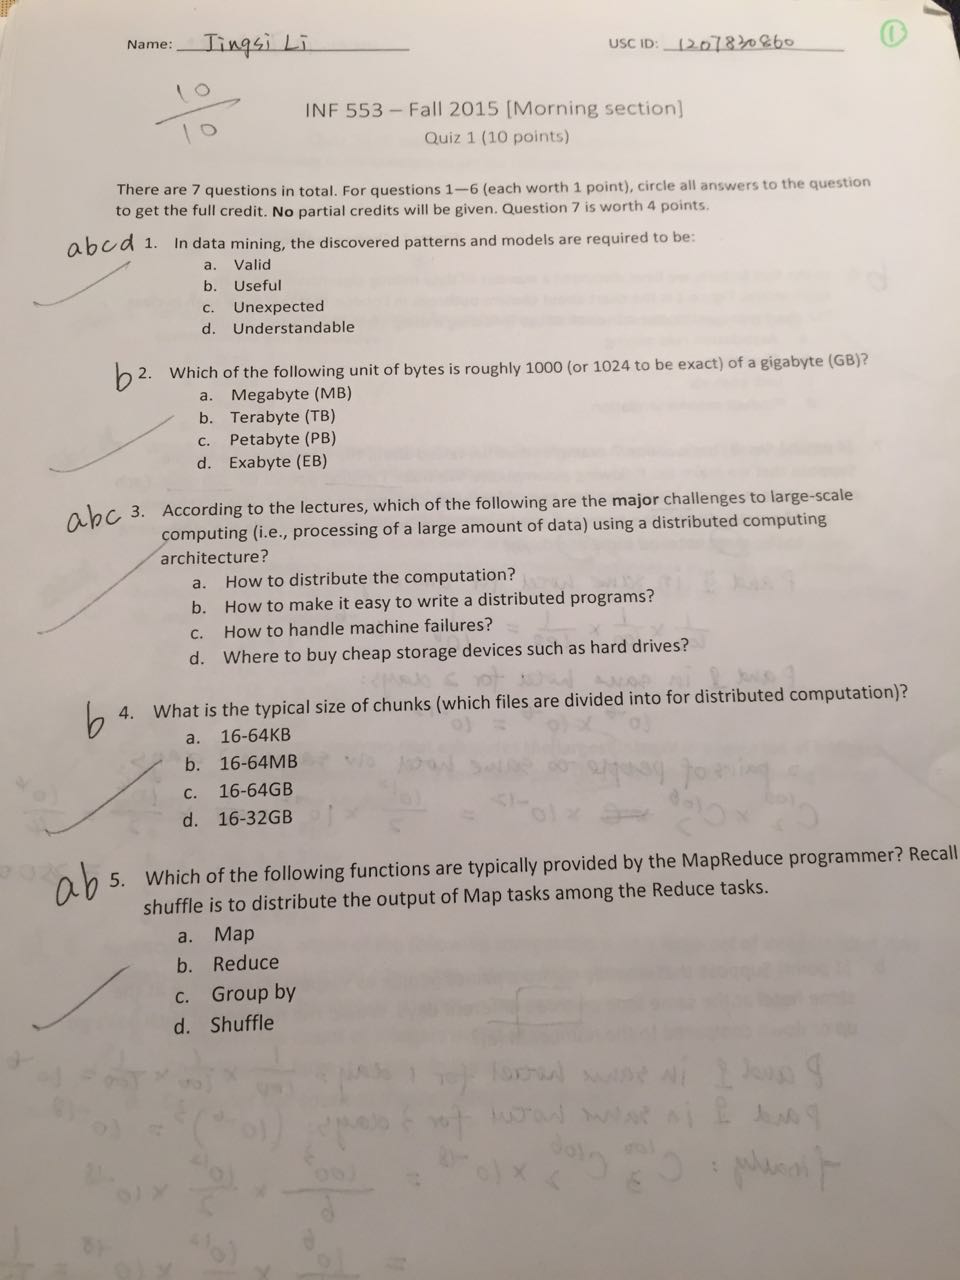 Name: Jingsi Li USC ID: 1207830860
①
10
10
INF 553 – Fall 2015 [Morning section]
Quiz 1 (10 points)
There are 7 questions in total. For questions 1—6 (each worth 1 point), circle all answers to the question
to get the full credit. No partial credits will be given. Question 7 is worth 4 points.
abcd 1. In data mining, the discovered patterns and models are required to be:
a. Valid
b. Useful
c. Unexpected
d. Understandable
b 2. Which of the following unit of bytes is roughly 1000 (or 1024 to be exact) of a gigabyte (GB)?
a. Megabyte (MB)
b. Terabyte (TB)
c. Petabyte (PB)
d. Exabyte (EB)
abc 3. According to the lectures, which of the following are the major challenges to large-scale
computing (i.e., processing of a large amount of data) using a distributed computing
architecture?
a. How to distribute the computation?
b. How to make it easy to write a distributed programs?
c. How to handle machine failures?
d. Where to buy cheap storage devices such as hard drives?
b 4. What is the typical size of chunks (which files are divided into for distributed computation)?
a. 16-64KB
b. 16-64MB
c. 16-64GB
d. 16-32GB
ab 5. Which of the following functions are typically provided by the MapReduce programmer? Recall
shuffle is to distribute the output of Map tasks among the Reduce tasks.
a. Map
b. Reduce
c. Group by
d. Shuffle